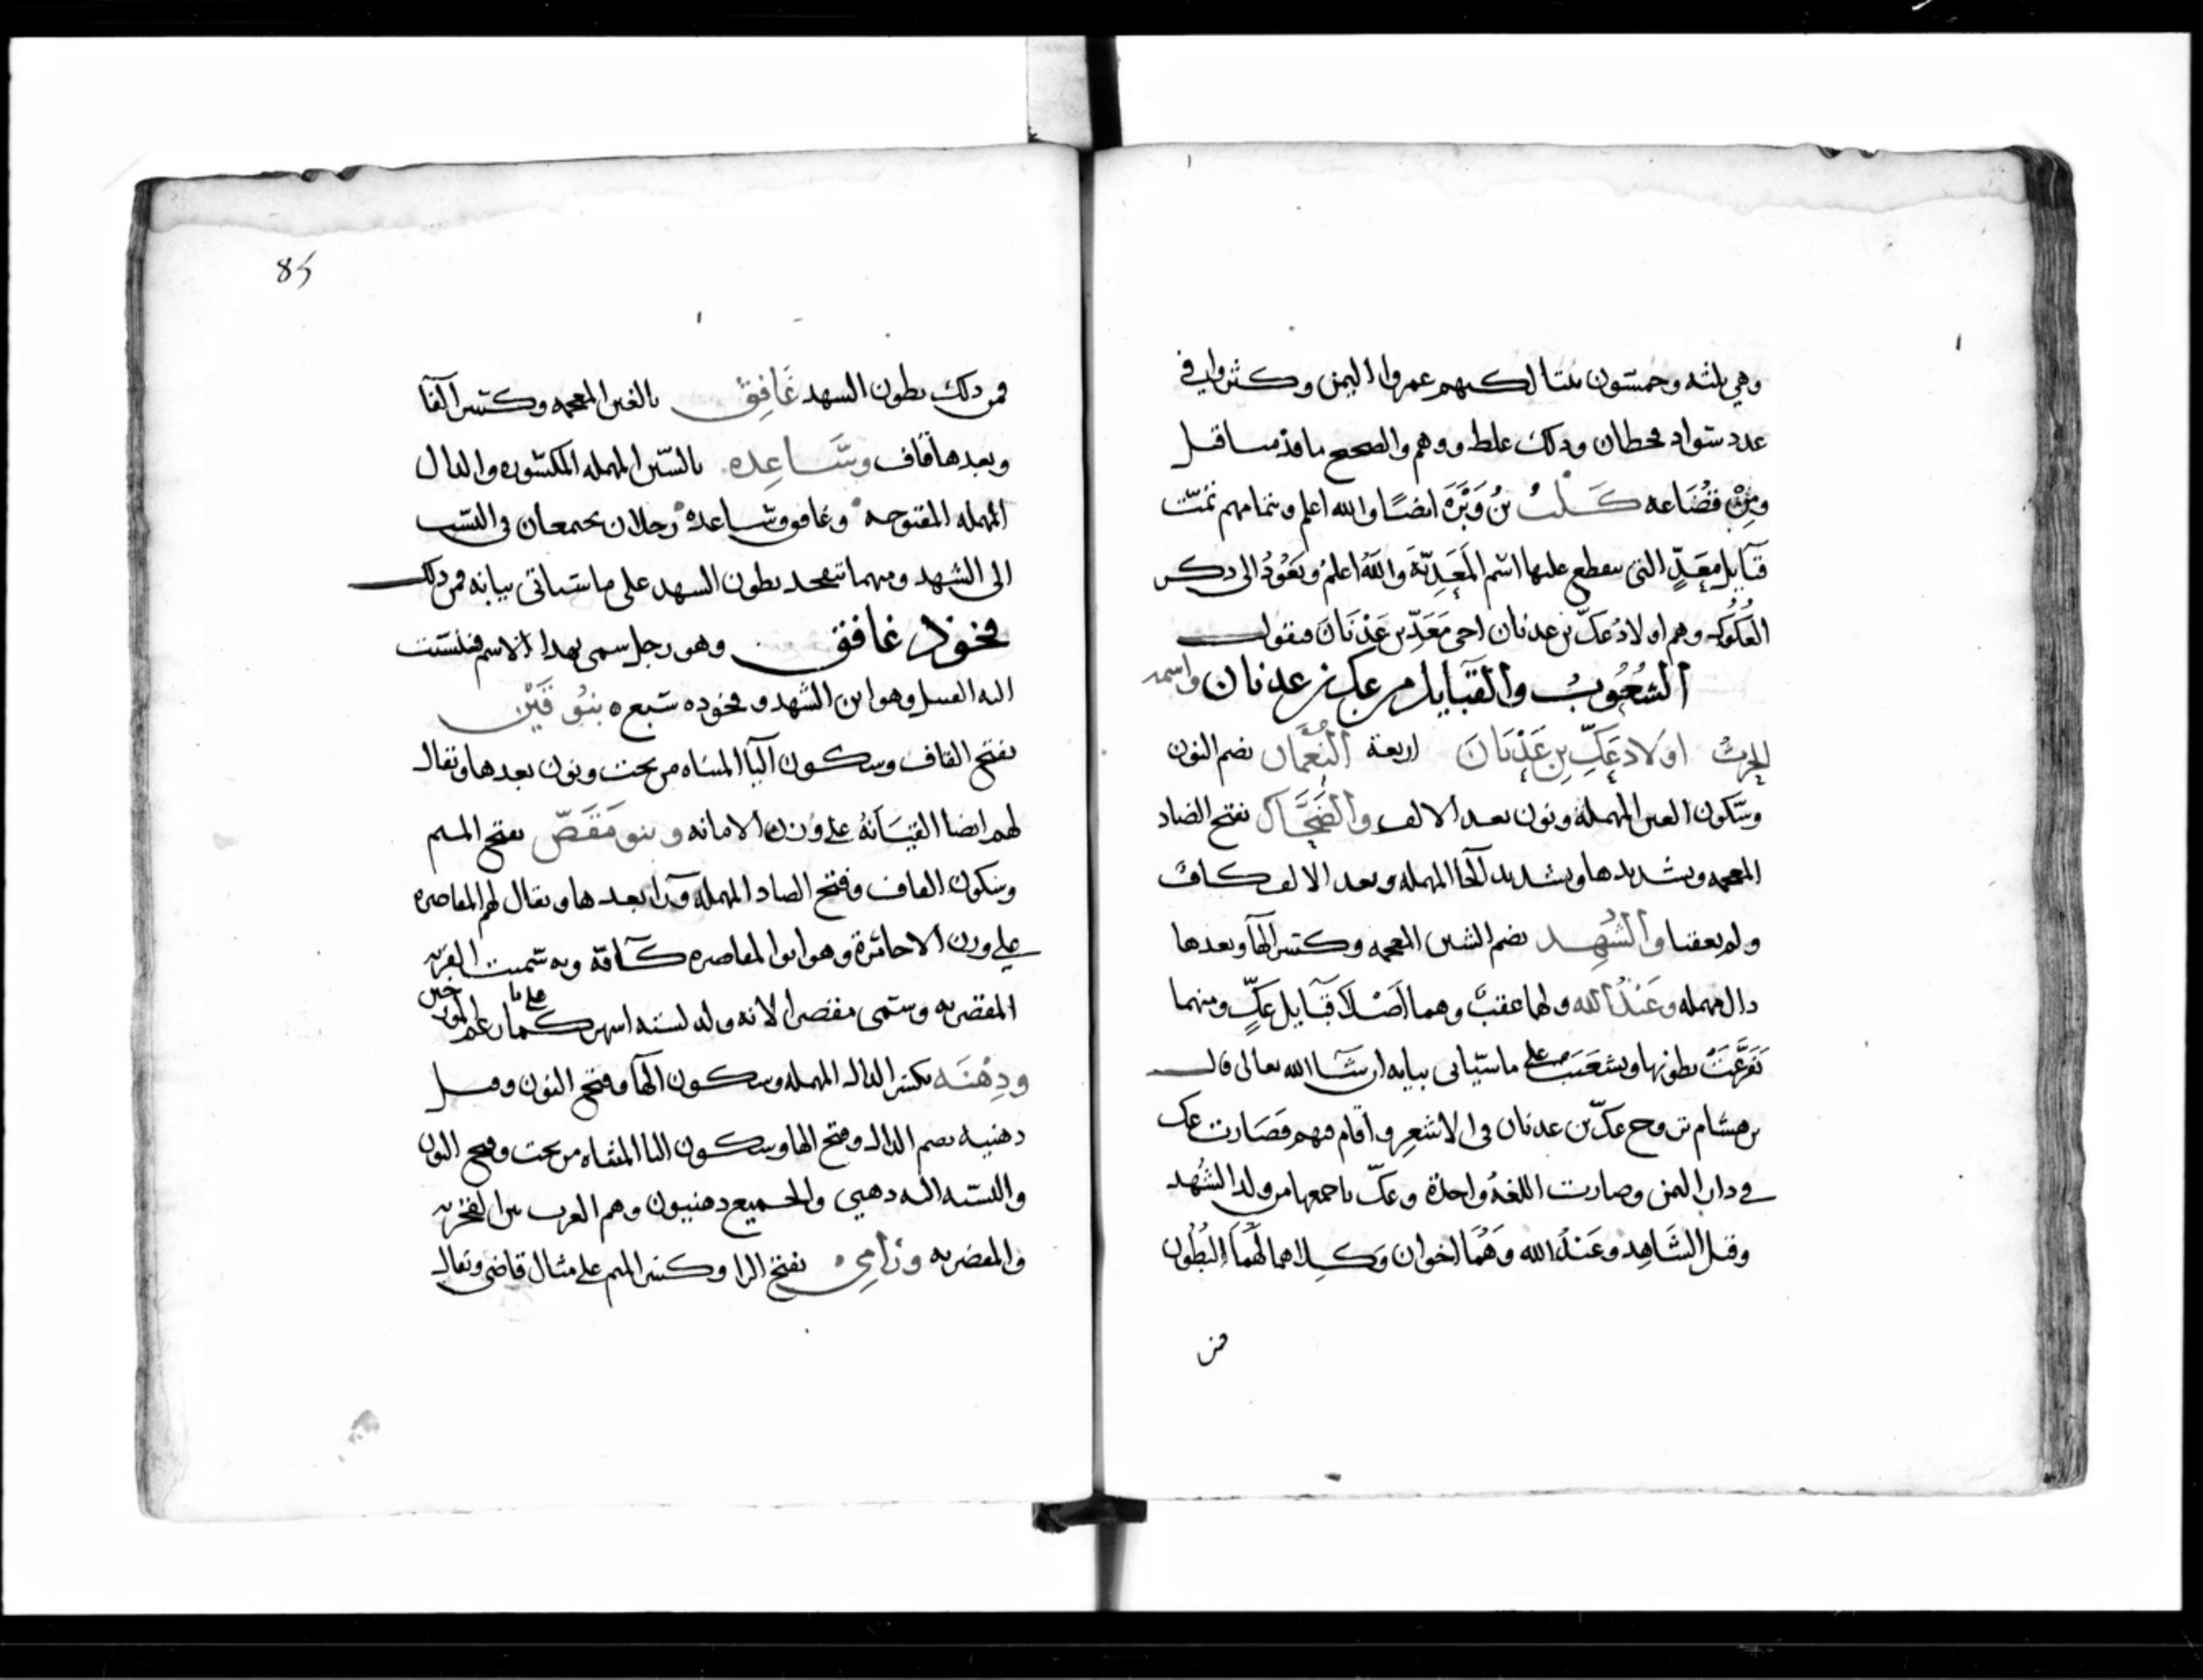 وهي ثلثه وخمسون مثتا لكنهم عمروا اليمن وكثروا في
عدد سواد قحطان وذلك غلط ووهم والصحيح ما قدمنا قبل
ومن قضاعه كلب بن وبرة ايضا والله اعلم وبتمامهم تمت
قبايل معد التي ينطلع عليها اسم المعدية والله اعلم ونعود الى ذكر
العكوك وهم اولاد عك بن عدنان اخي معد بن عدنان فنقول
الشعوب والقبايل من عك بن عدنان واسمه
الحرث اولاد عك بن عدنان اربعة النعمان بضم النون
وسكون العين المهملة ونون بعد الالف والضحاك بفتح الضاد
المعجمه وتشديدها وتشديد الحا المهمله وبعد الالف كاف
ولم يعقبا والشهد بضم الشين المعجمه وكسر الهآ وبعدها
دال مهمله وعبد الله ولهما عقب وهما اصلا قبايل عك ومنهما
تفرعت بطونها وتشعبت على ماسياتى بيانه ان شآ الله تعالى قال
بن هشام تزوج عك بن عدنان في الاشعر واقام فيهم فصارت عك
في دار اليمن وصارت اللغة واحدة وعك باجمعها من ولد الشهد
وقيل الشاهد وعبد الله وهما اخوان وكلاهما لهما البطون
فمن
85
فمن ذلك بطون الشهد غافق بالغين المعجمه وكسر الفا
وبعدها قاف وساعده بالسين المهمله المكسوره والدال
المهمله المفتوحه وغافق وساعدة رجلان يجتمعان في النسب
الى الشهد ومنهما تتخذ بطون الشهد على ما سياتى بيانه فمن ذلك
فخوذ غافق وهو رجل سمى بهذا الاسم فنسبت
اليه القبيل وهو ابن الشهد وفخوذه سبعه بنو قين
بفتح القاف وسكون اليآ المثناه من تحت ونون بعدها ويقال
لهم ايضا القيسانة على وزن الامانه وبنو مقصر بفتح الميم
وسكون القاف وفتح الصاد المهمله ورآ بعدها ويقال لهم المقاصره
على وزن الاحاثرة وهو ابو المقاصره كآفة وبه سميت القرية
المقصريه وسمى مقصرا لانه ولد لسته اشهر كما زعم على ما المؤرخين
ودهنه بكسر الدال المهمله وسكون الهآ وفتح النون وقيل
دهنيه بضم الدال وفتح الها وسكون اليا المثناه من تحت وفتح النون
والنسبه اليه دهيني والجميع دهنيون وهم العرب بين الفخريه
والمقصريه ورامي بفتح الرا وكسر الميم على مثال قاضي ويقال